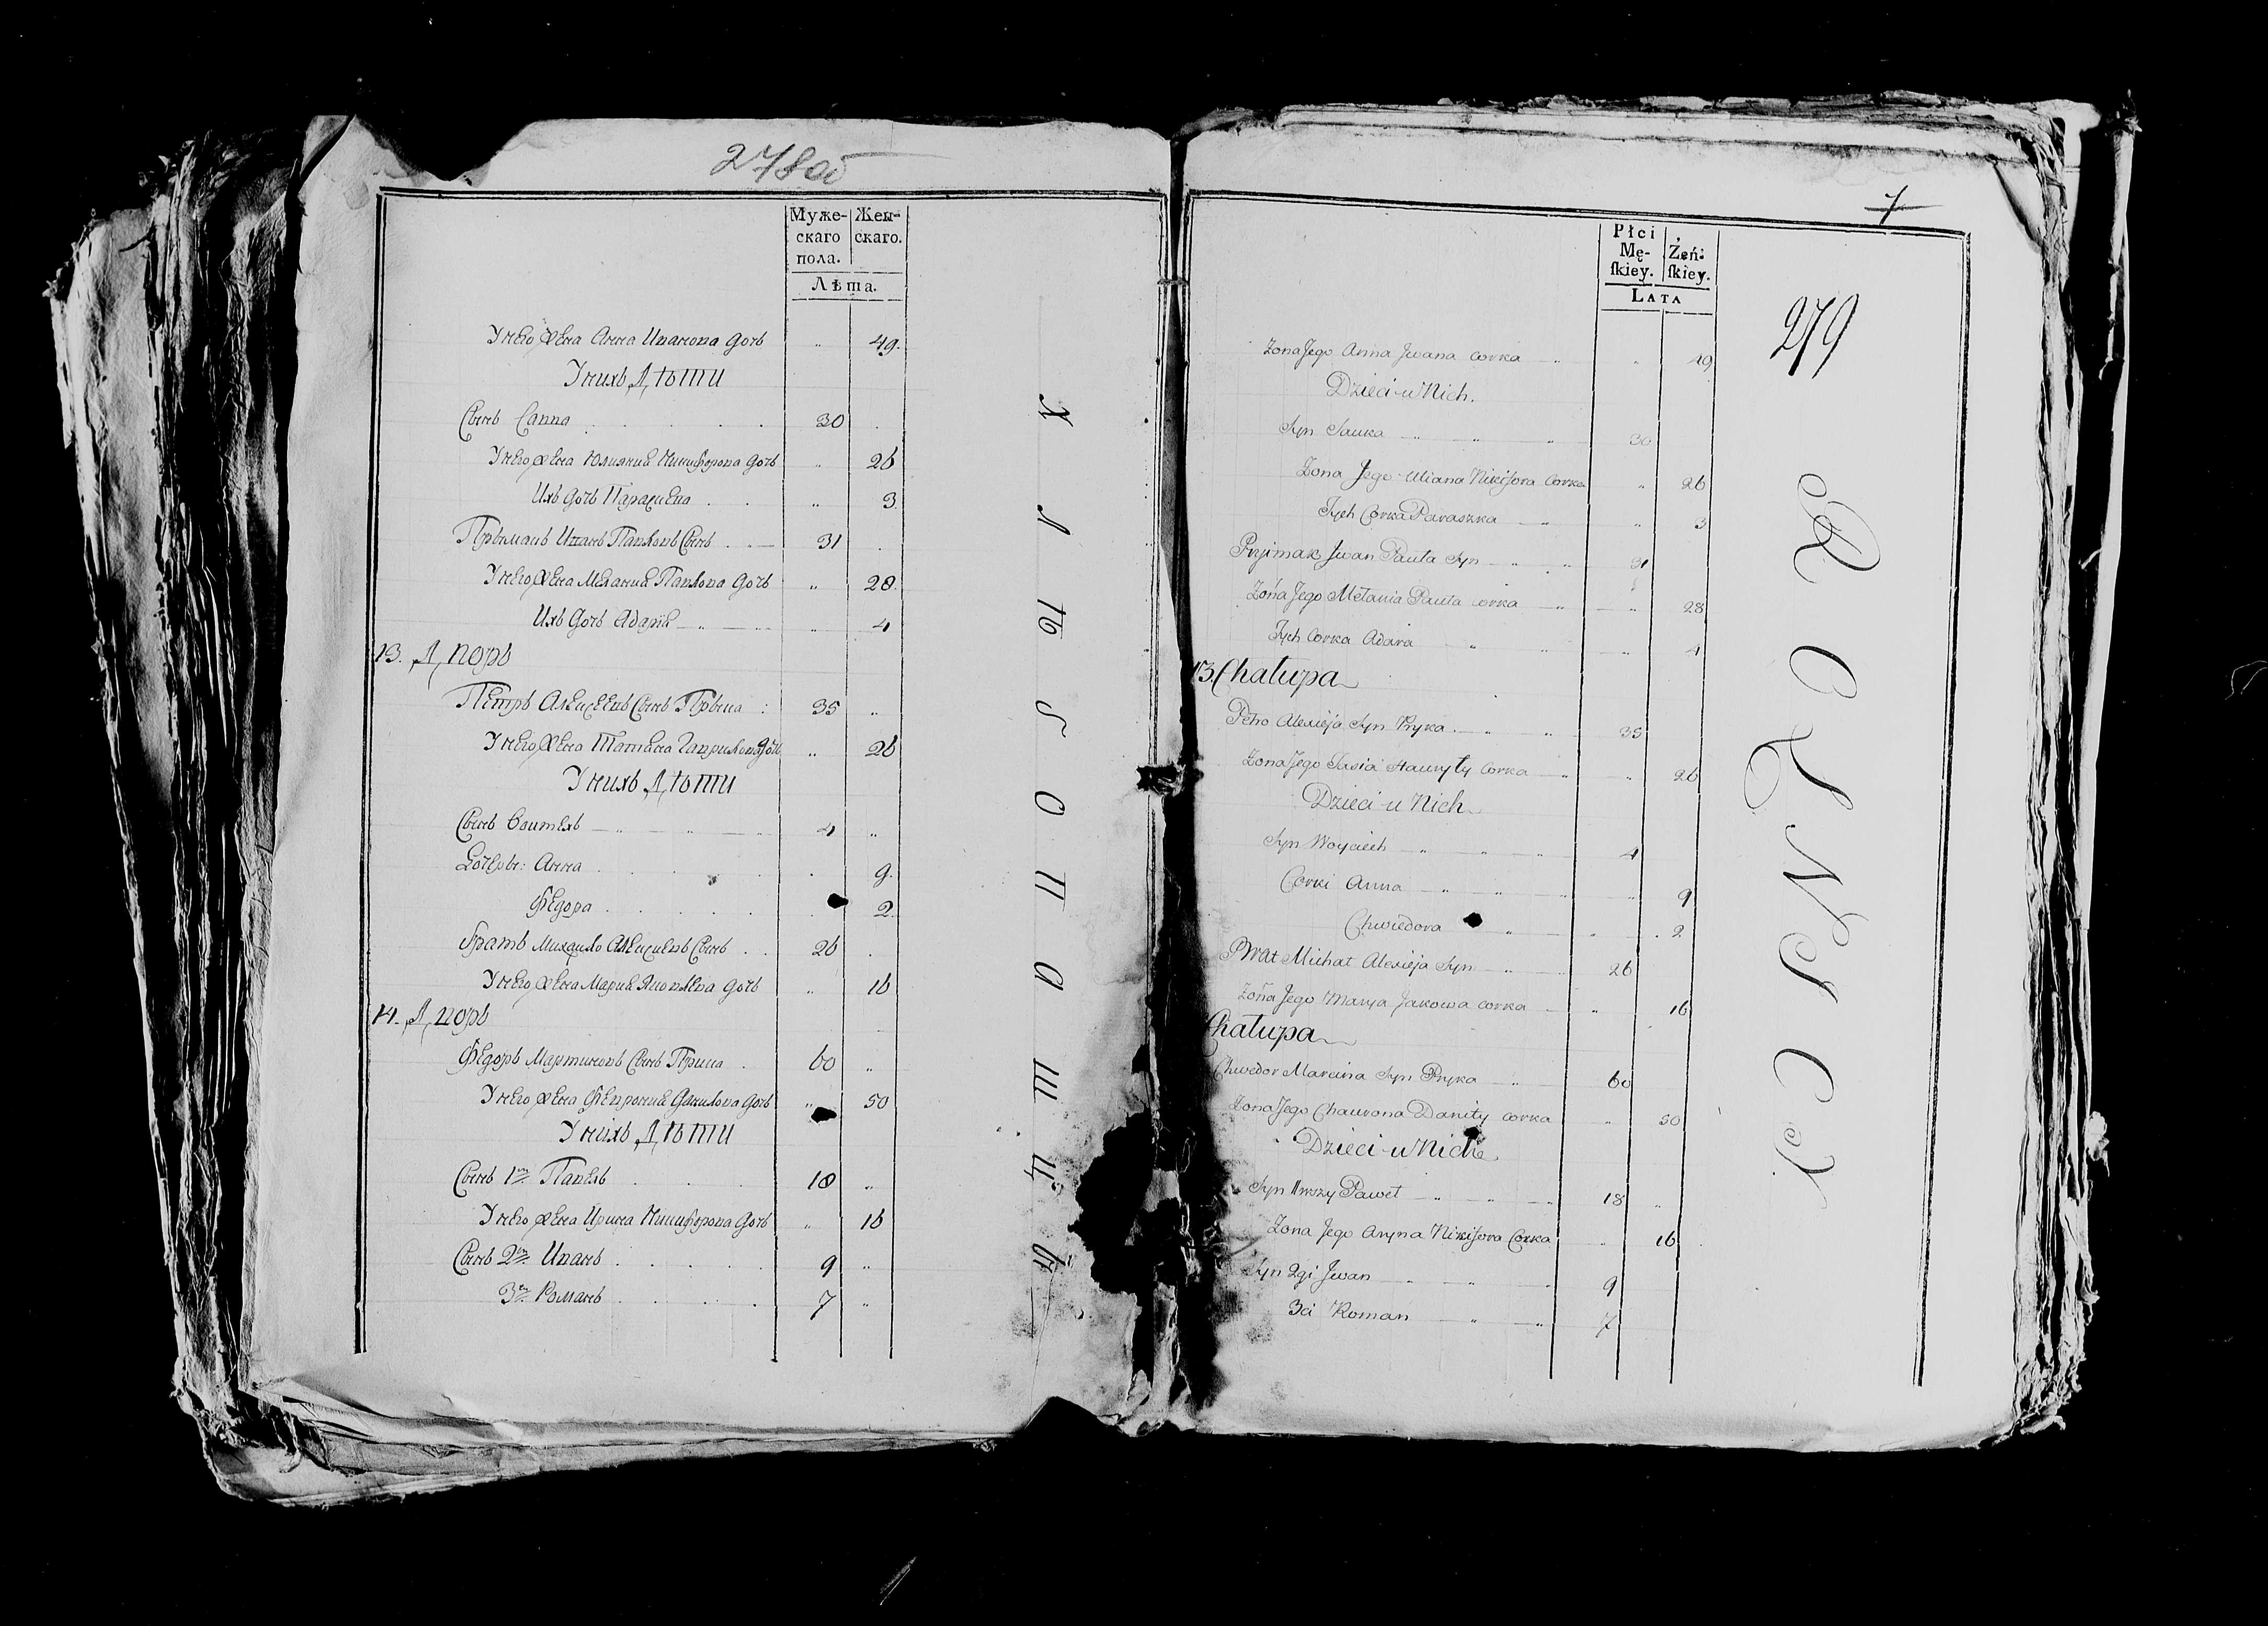 278об
Муже-
скаго
пола.
Жен-
скаго.
Лѣта.
У него жена Анна Иванова дочь „ 49.
У нихъ Дѣти
Сынъ Савка 30
У него жена Юлиянна Никифорова дочь „ 26
Ихъ дочь Параскева „ 3.
Прыймакъ Иванъ Павловъ Сынъ 31
У него жена Мелания Павлова дочь „ 28.
Ихъ дочь Адария „ 4
13. Дворъ
Петръ Алексеевъ Сынъ Прыка : 35 „
У него жена Татьяна Гаврилова дочь „ 26
У нихъ Дѣти
Сынъ Войтехъ 4 „
Дочери: Анна 9.
Федора 2.
Братъ Михайло Алексеевъ Сынъ 26
У него жена Мария Яковлева дочь „ 16
14. Дворъ
Федоръ Мартиновъ Сынъ Прика 60 „
У него жена Феврония Данилова дочь „ 50
У нихъ Дѣти
Сынъ 1й Павелъ 18 „
У него жена Ирина Никифорова дочь „ 16
Сынъ 2й Иванъ 9 „
3й Романъ 7 „
Х Л Ѣ Б О П А Ш Ц Ы
7
Płci
Mę-
ſkiey.
Żeń-
ſkiey.
LATA
279
Zona Jego Anna Jwana corka „ 49
Dzieci u Nich.
Syn Sauka 30
Zona Jego Uliana Nikifora Corka „ 26
Tych Corka Paraszka „ 3
Pryimak Jwan Pauła Syn 31
Zona Jego Mełania Pauła corka „ 28
Tych Corka Adara „ 4
13 Chałupa
Petro Alexieja Syn Pryka 35
Zona Jego Tasia Hauryły Corka „ 26
Dzieci u Nich
Syn Woyciech 4
Corki Anna „ 9
Chwiedora „ 2
Brat Michał Alexieja Syn 26
Zona Jego Marya Jakowa corka „ 16
Chałupa
Chwedor Marcina Syn Pryka 60
Zona Jego Chaurona Daniły corka „ 50
Dzieci u Nich
Syn 1wszy Paweł 18 „
Zona Jego Aryna Nikifora Corka „ 16
Syn 2gi Jwan 9
3ci Roman 7
R O L N I C Y